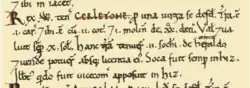 7 ibi iacent
Rex .W. teñ CERLETONE. ꝑ una uirga se defd̃. Tra ẽ
.i. car̃. Ibi ẽ cũ .ii. cot̃. 7 i. moliñ de xx. deñ. Val 7 ua
luit sẽp .x. sol. Hanc trã tenueꝛ̃ .ii. sochi de heraldo
7 uende potueꝛ̃ absq; licentia ei. Soca fuit semp in hiz.
qdo fuit uicecom̃ apposuit in hiz.